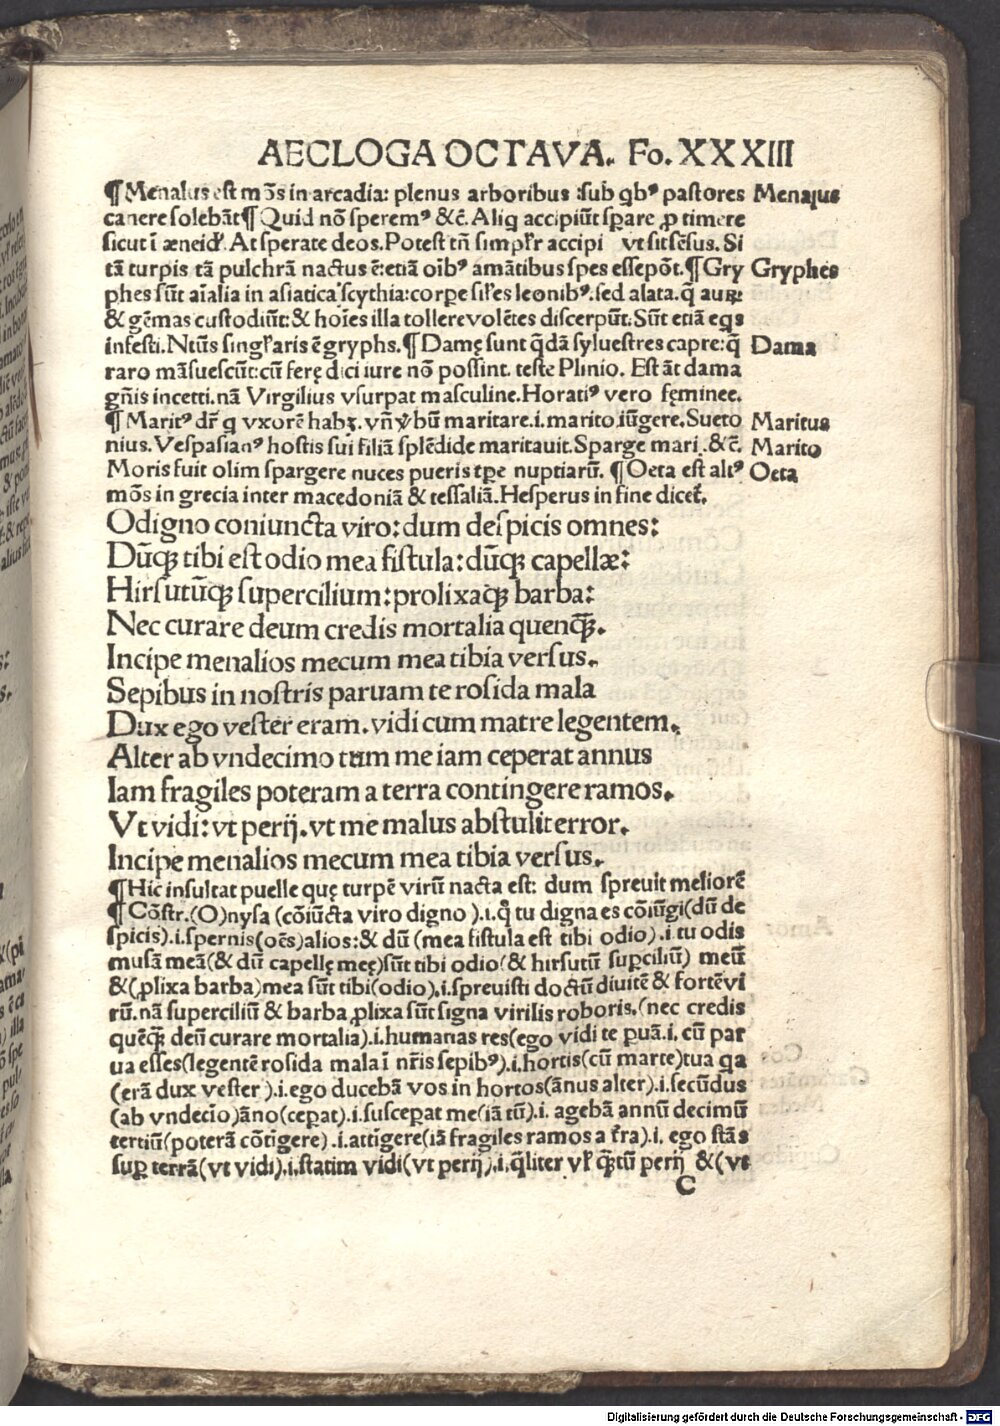 AECLOGA OCTAVA. Fo. XXXIII
¶ Menalus est mõs in arcadia: plenus arboribus :sub qbꝰ pastores Menalus
canere solebãt¶ Quid nõ speremꝰ &c̃. Aliq accipiũt sꝑare ꝓ timere
sicut ĩ æneid'. At sperate deos. Potest tñ simpl'r accipi vt sit sẽsus. Si
tã turpis tã pulchrã nactus ẽ: etiã oĩbꝰ amãtibus spes esse põt.¶ Gry Gryphes
phes sũt aĩalia in asiatica scythia: corꝑe sil'es leonibꝰ. sed alata. q̃ auꝝ:
& gẽmas custodiũt: & hoĩes illa tollere volẽtes discerpũt. Sũt etiã eqs
infesti. Ntũs singl'aris ẽ gryphs.¶ Damę sunt q̃dã syluestres capre: q̃ Dama
raro mãsuescũt: cũ ferę dici iure nõ possint. teste Plinio. Est ãt dama
gñis incerti. nã Virgilius vsurpat masculine. Horatiꝰ vero fęminee.
¶ Maritꝰ dr̃ q vxorẽ habꝫ. vñ ṽbũ maritare .i. marito iũgere. Sueto Maritus
nius. Vespasianꝰ hostis sui filiã splẽdide maritauit. Sparge mari .&c̃. Marito
Moris fuit olim spargere nuces pueris tꝑe nuptiarũ. ¶ Oeta est altꝰ Oeta
mõs in grecia inter macedoniã & tessaliã. Hesperus in fine dicet̃.
O digno coniuncta viro: dum despicis omnes:
Dũqꝫ tibi est odio mea fistula: dũqꝫ capellæ:
Hirsutũqꝫ supercilium: prolixaqꝫ barba:
Nec curare deum credis mortalia quenq̃ꝫ.
Incipe menalios mecum mea tibia versus.
Sepibus in nostris paruam te rosida mala
Dux ego vester eram. vidi cum matre legentem.
Alter ab vndecimo tum me iam ceperat annus
Iam fragiles poteram a terra contingere ramos.
Vt vidi: vt perij. vt me malus abstulit error.
Incipe menalios mecum mea tibia versus.
¶ Hic insultat puelle quę turpẽ virũ nacta est: dum spreuit meliorẽ
¶ Cõstr. (O) nysa (cõiũcta viro digno ) .i. q̃ tu digna es cõiũgi (dũ de
spicis) .i. spernis (oẽs) alios: & dũ (mea fistula est tibi odio) .i. tu odis
musã meã (& dũ capellę meę) sũt tibi odio (& hirsutũ suꝑciliũ) meũ
& (ꝓlixa barba) mea sũt tibi (odio) .i. spreuisti doctũ diuitẽ & fortẽ vi
rũ. nã superciliũ & barba ꝓlixa sũt signa virilis roboris. (nec credis
quẽq̃ꝫ deũ curare mortalia) .i. humanas res (ego vidi te ꝑuã .i. cũ par
ua esses (legentẽ rosida mala ĩ nr̃is sepibꝰ) .i. hortis (cũ marte) tua qa
(erã dux vester ) .i. ego ducebã vos in hortos (ãnus alter) .i. secũdus
(ab vndecĩo) ãno (ceꝑat) .i. susceꝑat me (iã tũ) .i. agebã annũ decimũ
tertiũ (poterã cõtigere) .i. attĩgere (iã fragiles ramos a t̃ra) .i. ego stãs
suꝑ terrã (vt vidi) .i. statim vidi (vt perij) .i. q̃liter vl' q̃ꝫtũ perij & (vt
C
Digitalisierung gefördert durch die Deutsche Forschungsgemeinschaft - DFG